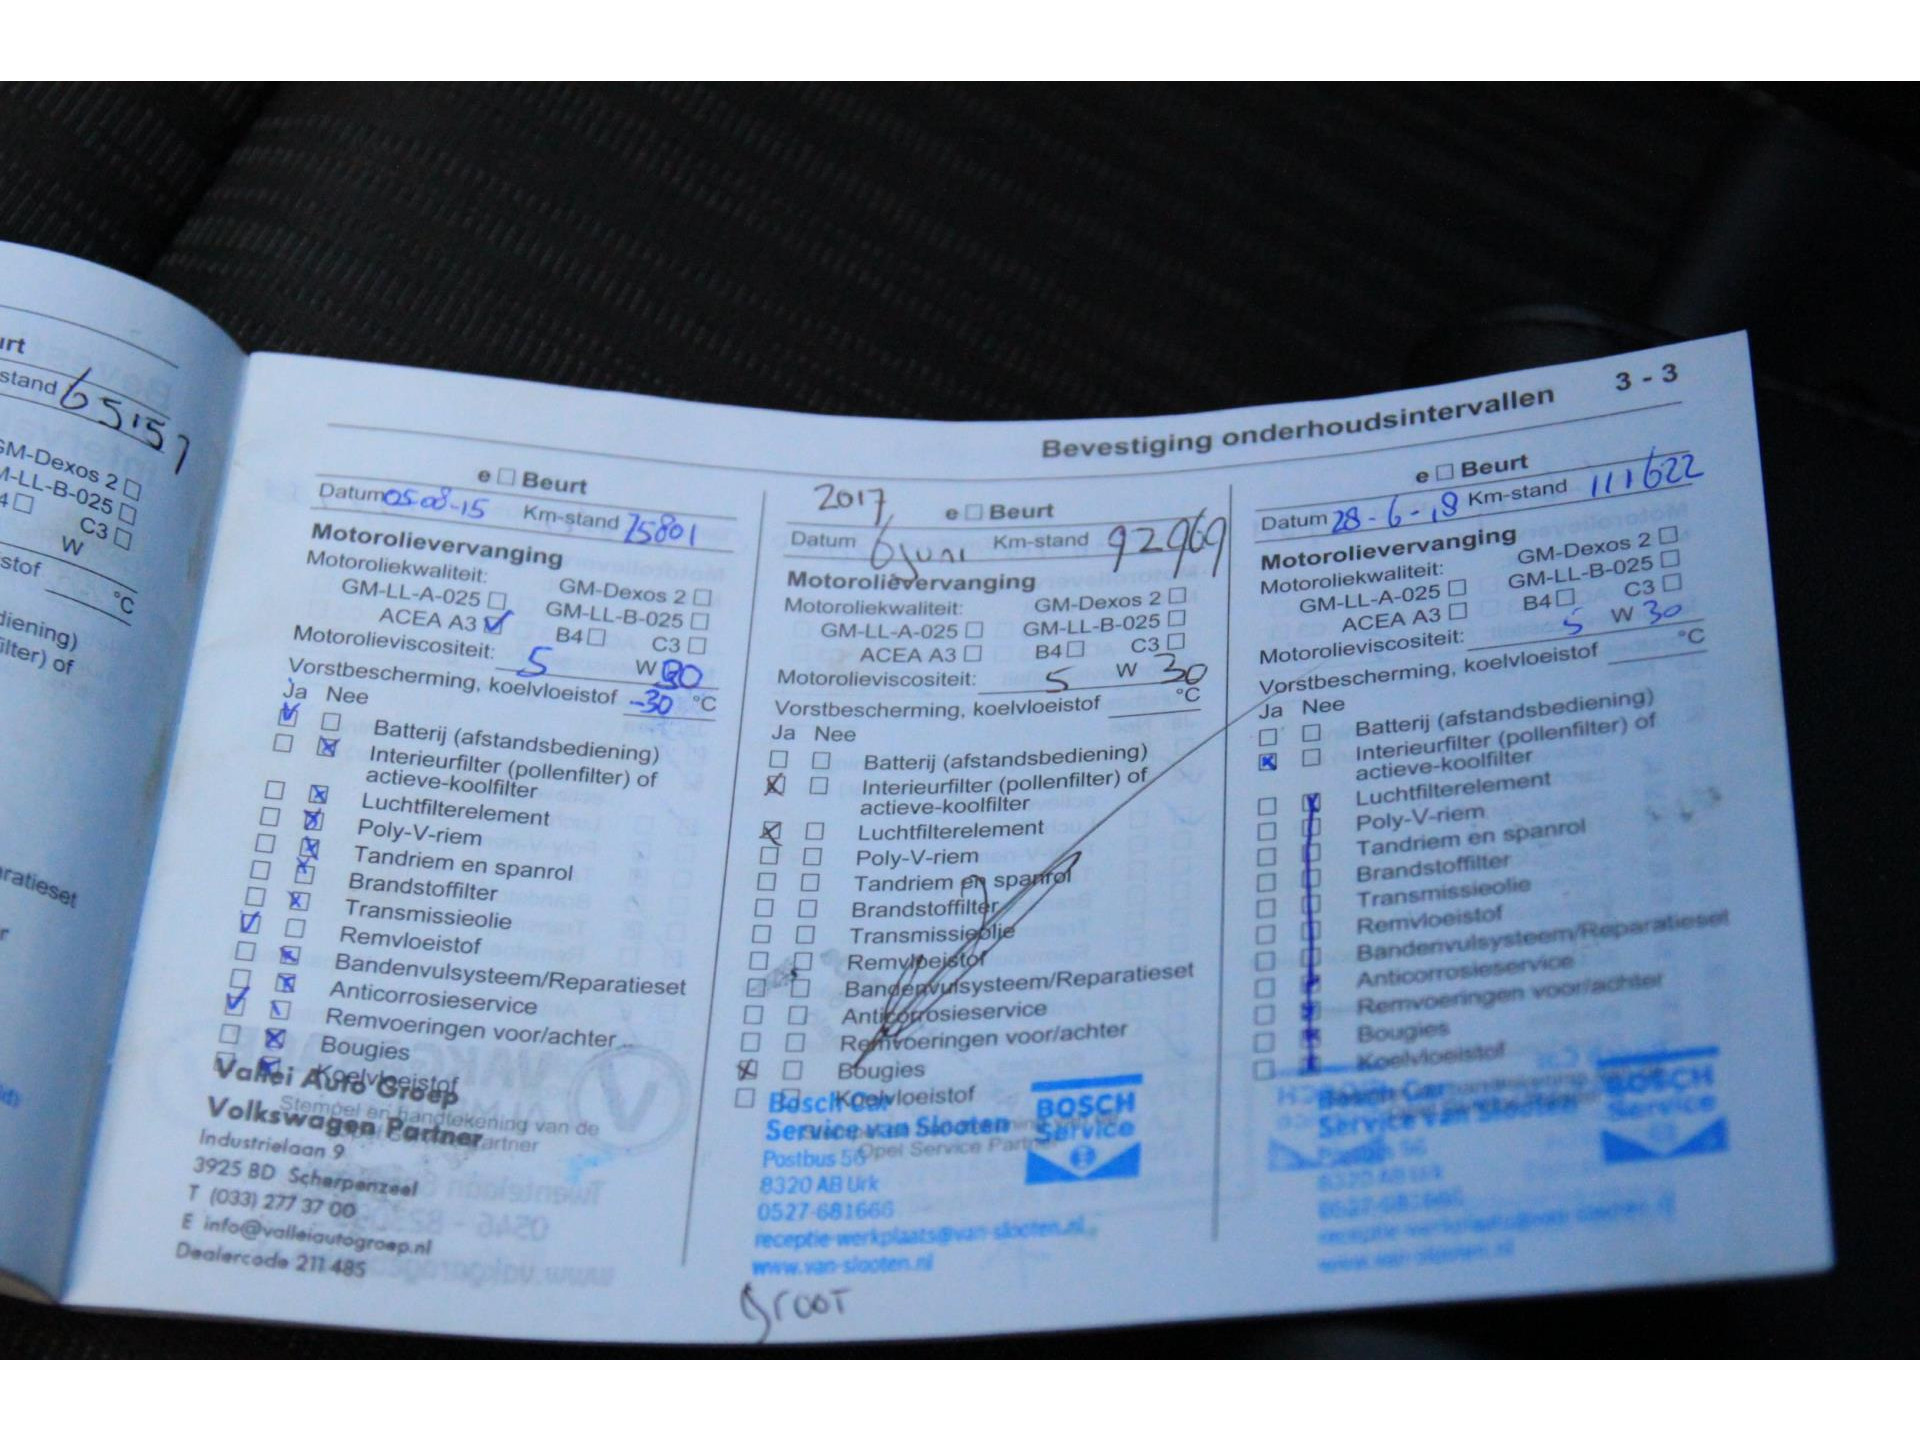 urt
stand 65157
GM-Dexos 2
M-LL-B-025
4 C3
W
stof °C
diening)
ilter) of
ratieset
r
Bevestiging onderhoudsintervallen 3 - 3
e Beurt
Datum 05-08-15 Km-stand 75801
Motorolievervanging
Motoroliekwaliteit: GM-Dexos 2
GM-LL-A-025 GM-LL-B-025
ACEA A3 B4 C3
Motorolieviscositeit: 5 W 30
Vorstbescherming, koelvloeistof -30 °C
Ja Nee
Batterij (afstandsbediening)
Interieurfilter (pollenfilter) of
actieve-koolfilter
Luchtfilterelement
Poly-V-riem
Tandriem en spanrol
Brandstoffilter
Transmissieolie
Remvloeistof
Bandenvulsysteem/Reparatieset
Anticorrosieservice
Remvoeringen voor/achter
Bougies
Koelvloeistof
Stempel en handtekening van de
Opel Service Partner
Vallei Auto Groep
Volkswagen Partner
Industrielaan 9
3925 BD Scherpenzeel
T (033) 277 37 00
E info@valleiautogroep.nl
Dealercode 211 485
2017
e Beurt
Datum 6 juni Km-stand 92969
Motorolievervanging
Motoroliekwaliteit: GM-Dexos 2
GM-LL-A-025 GM-LL-B-025
ACEA A3 B4 C3
Motorolieviscositeit: 5 W 30
Vorstbescherming, koelvloeistof °C
Ja Nee
Batterij (afstandsbediening)
Interieurfilter (pollenfilter) of
actieve-koolfilter
Luchtfilterelement
Poly-V-riem
Tandriem en spanrol
Brandstoffilter
Transmissieolie
Remvloeistof
Bandenvulsysteem/Reparatieset
Anticorrosieservice
Remvoeringen voor/achter
Bougies
Koelvloeistof
Opel Service Partner
Bosch Car
Service van Slooten
Postbus 56
8320 AB Urk
0527-681666
receptie-werkplaats@van-slooten.nl
www.van-slooten.nl
BOSCH
Service
groot
e Beurt
Datum 28-6-18 Km-stand 111622
Motorolievervanging
Motoroliekwaliteit: GM-Dexos 2
GM-LL-A-025 GM-LL-B-025
ACEA A3 B4 C3
Motorolieviscositeit: 5 W 30
Vorstbescherming, koelvloeistof °C
Ja Nee
Batterij (afstandsbediening)
Interieurfilter (pollenfilter) of
actieve-koolfilter
Luchtfilterelement
Poly-V-riem
Tandriem en spanrol
Brandstoffilter
Transmissieolie
Remvloeistof
Bandenvulsysteem/Reparatieset
Anticorrosieservice
Remvoeringen voor/achter
Bougies
Koelvloeistof
Bosch Car
Service van Slooten
Postbus 56
8320 AB Urk
0527-681666
receptie-werkplaats@van-slooten.nl
www.van-slooten.nl
BOSCH
Service